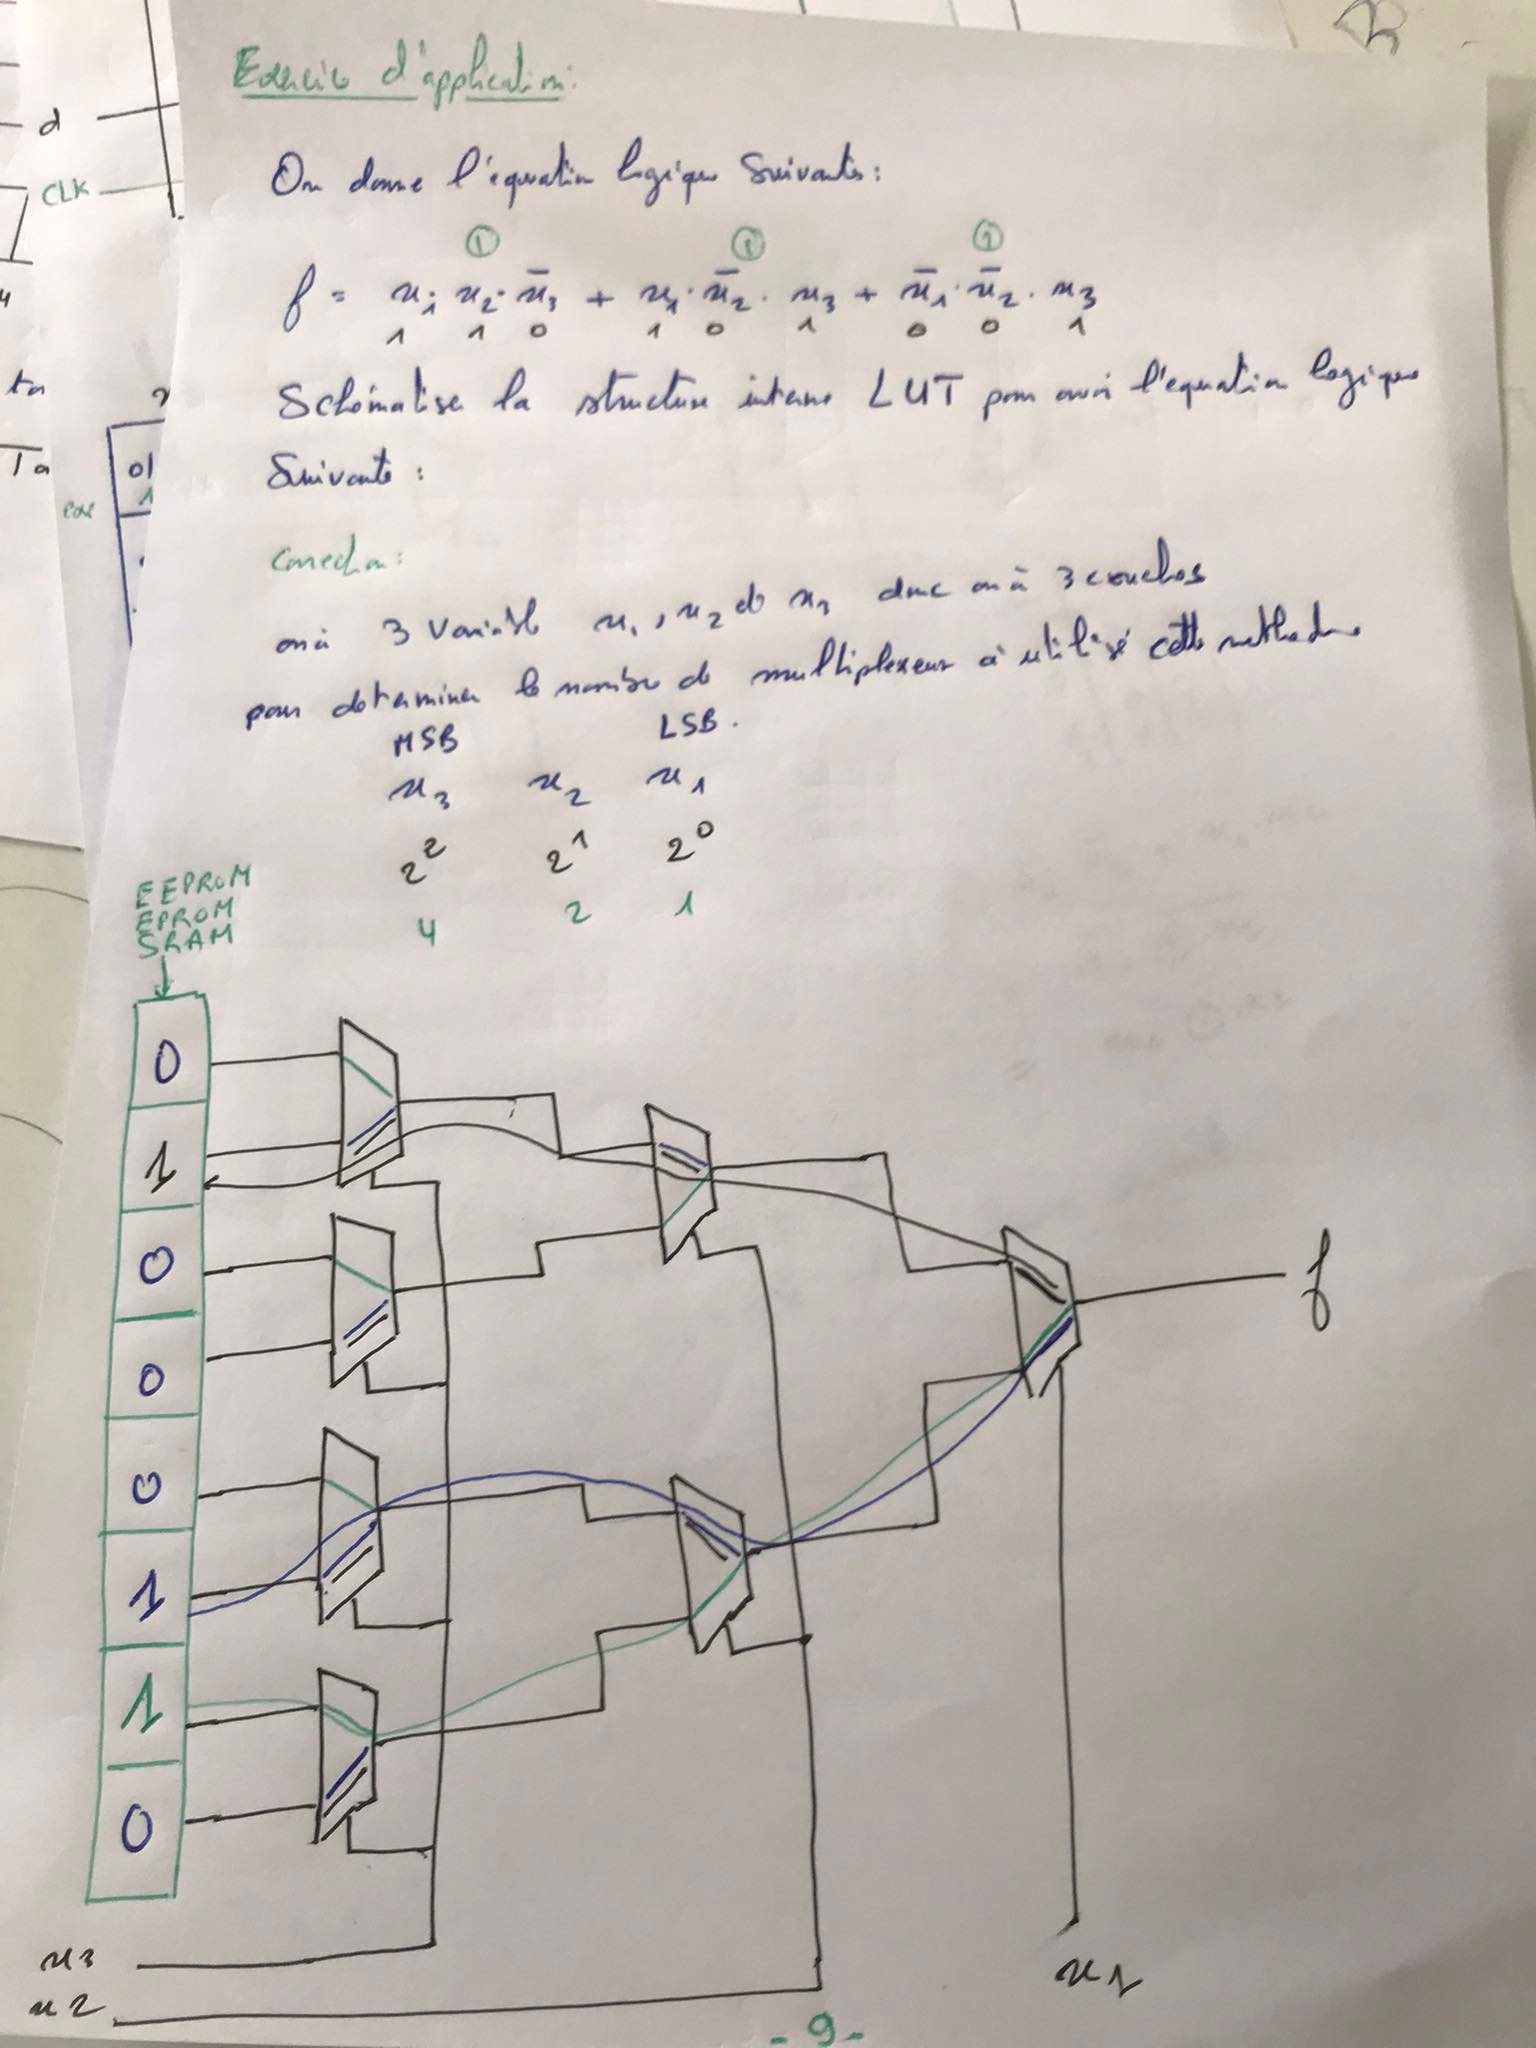 d
CLK
4
ta
Ta
01
1
Exercice d'application:
On donne l'équation logique Suivante:
① ① ①
f = x1. x2. x̄3 + x1. x̄2. x3 + x̄1. x̄2. x3
1 1 0 1 0 1 0 0 1
Schématise la structure interne LUT pour avoir l'equation logique
Suivante :
Correction:
on à 3 Variable x1, x2 et x3 donc on à 3 couches
pour determiner le nombre de multiplexeur à utilisé cette methode
MSB LSB.
x3 x2 x1
2² 2¹ 2⁰
4 2 1
EEPROM
EPROM
SRAM
0
1
0
0
0
1
1
0
f
x3
x2
x1
- 9 -